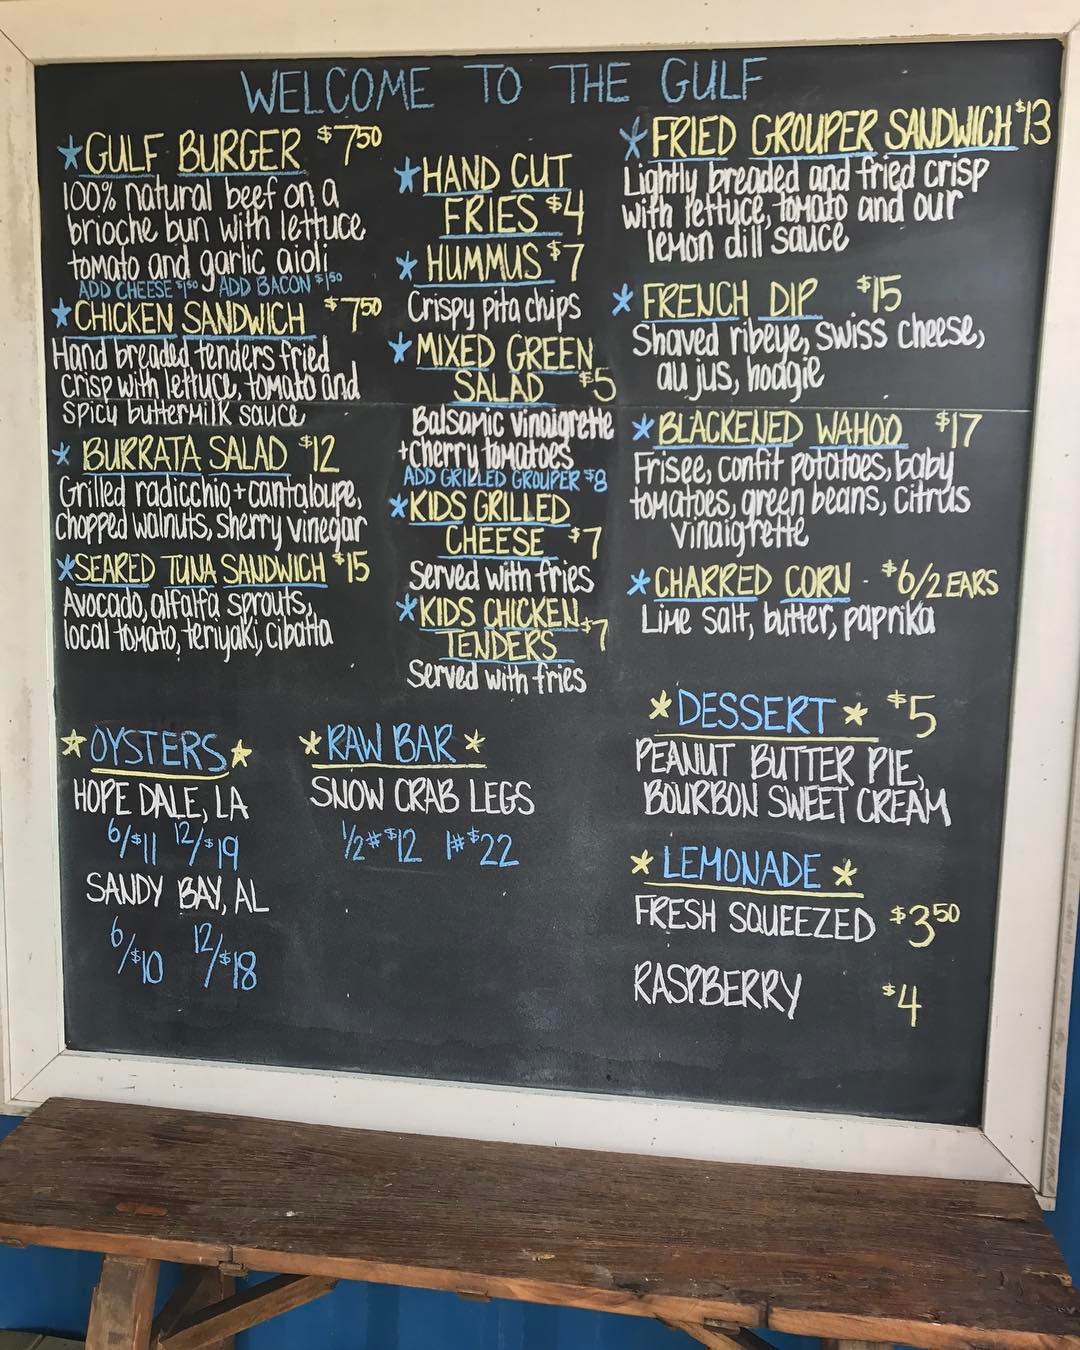 WELCOME TO THE GULF
*GULF BURGER $7.50
100% natural beef on a
brioche bun with lettuce
tomato and garlic aioli
ADD CHEESE $1.50 ADD BACON $1.50
*CHICKEN SANDWICH $7.50
Hand breaded tenders fried
crisp with lettuce, tomato and
spicy buttermilk sauce
*BURRATA SALAD $12
Grilled radicchio + cantaloupe,
chopped walnuts, sherry vinegar
*SEARED TUNA SANDWICH $15
Avocado, alfalfa sprouts,
local tomato, teriyaki, cibatta
*HAND CUT
FRIES $4
*HUMMUS $7
Crispy pita chips
*MIXED GREEN
SALAD $5
Balsamic vinaigrette
+cherry tomatoes
ADD GRILLED GROUPER $8
*KIDS GRILLED
CHEESE $7
Served with fries
*KIDS CHICKEN
TENDERS $7
Served with fries
*FRIED GROUPER SANDWICH $13
Lightly breaded and fried crisp
with lettuce, tomato and our
lemon dill sauce
*FRENCH DIP $15
Shaved ribeye, swiss cheese,
au jus, hoagie
*BLACKENED WAHOO $17
Frisee, confit potatoes, baby
tomatoes, green beans, citrus
vinaigrette
*CHARRED CORN - $6/2 EARS
Lime salt, butter, paprika
*OYSTERS*
HOPE DALE, LA
6/$11 12/$19
SANDY BAY, AL
6/$10 12/$18
*RAW BAR*
SNOW CRAB LEGS
1/2# $12 1# $22
*DESSERT* $5
PEANUT BUTTER PIE,
BOURBON SWEET CREAM
*LEMONADE*
FRESH SQUEEZED $3.50
RASPBERRY $4